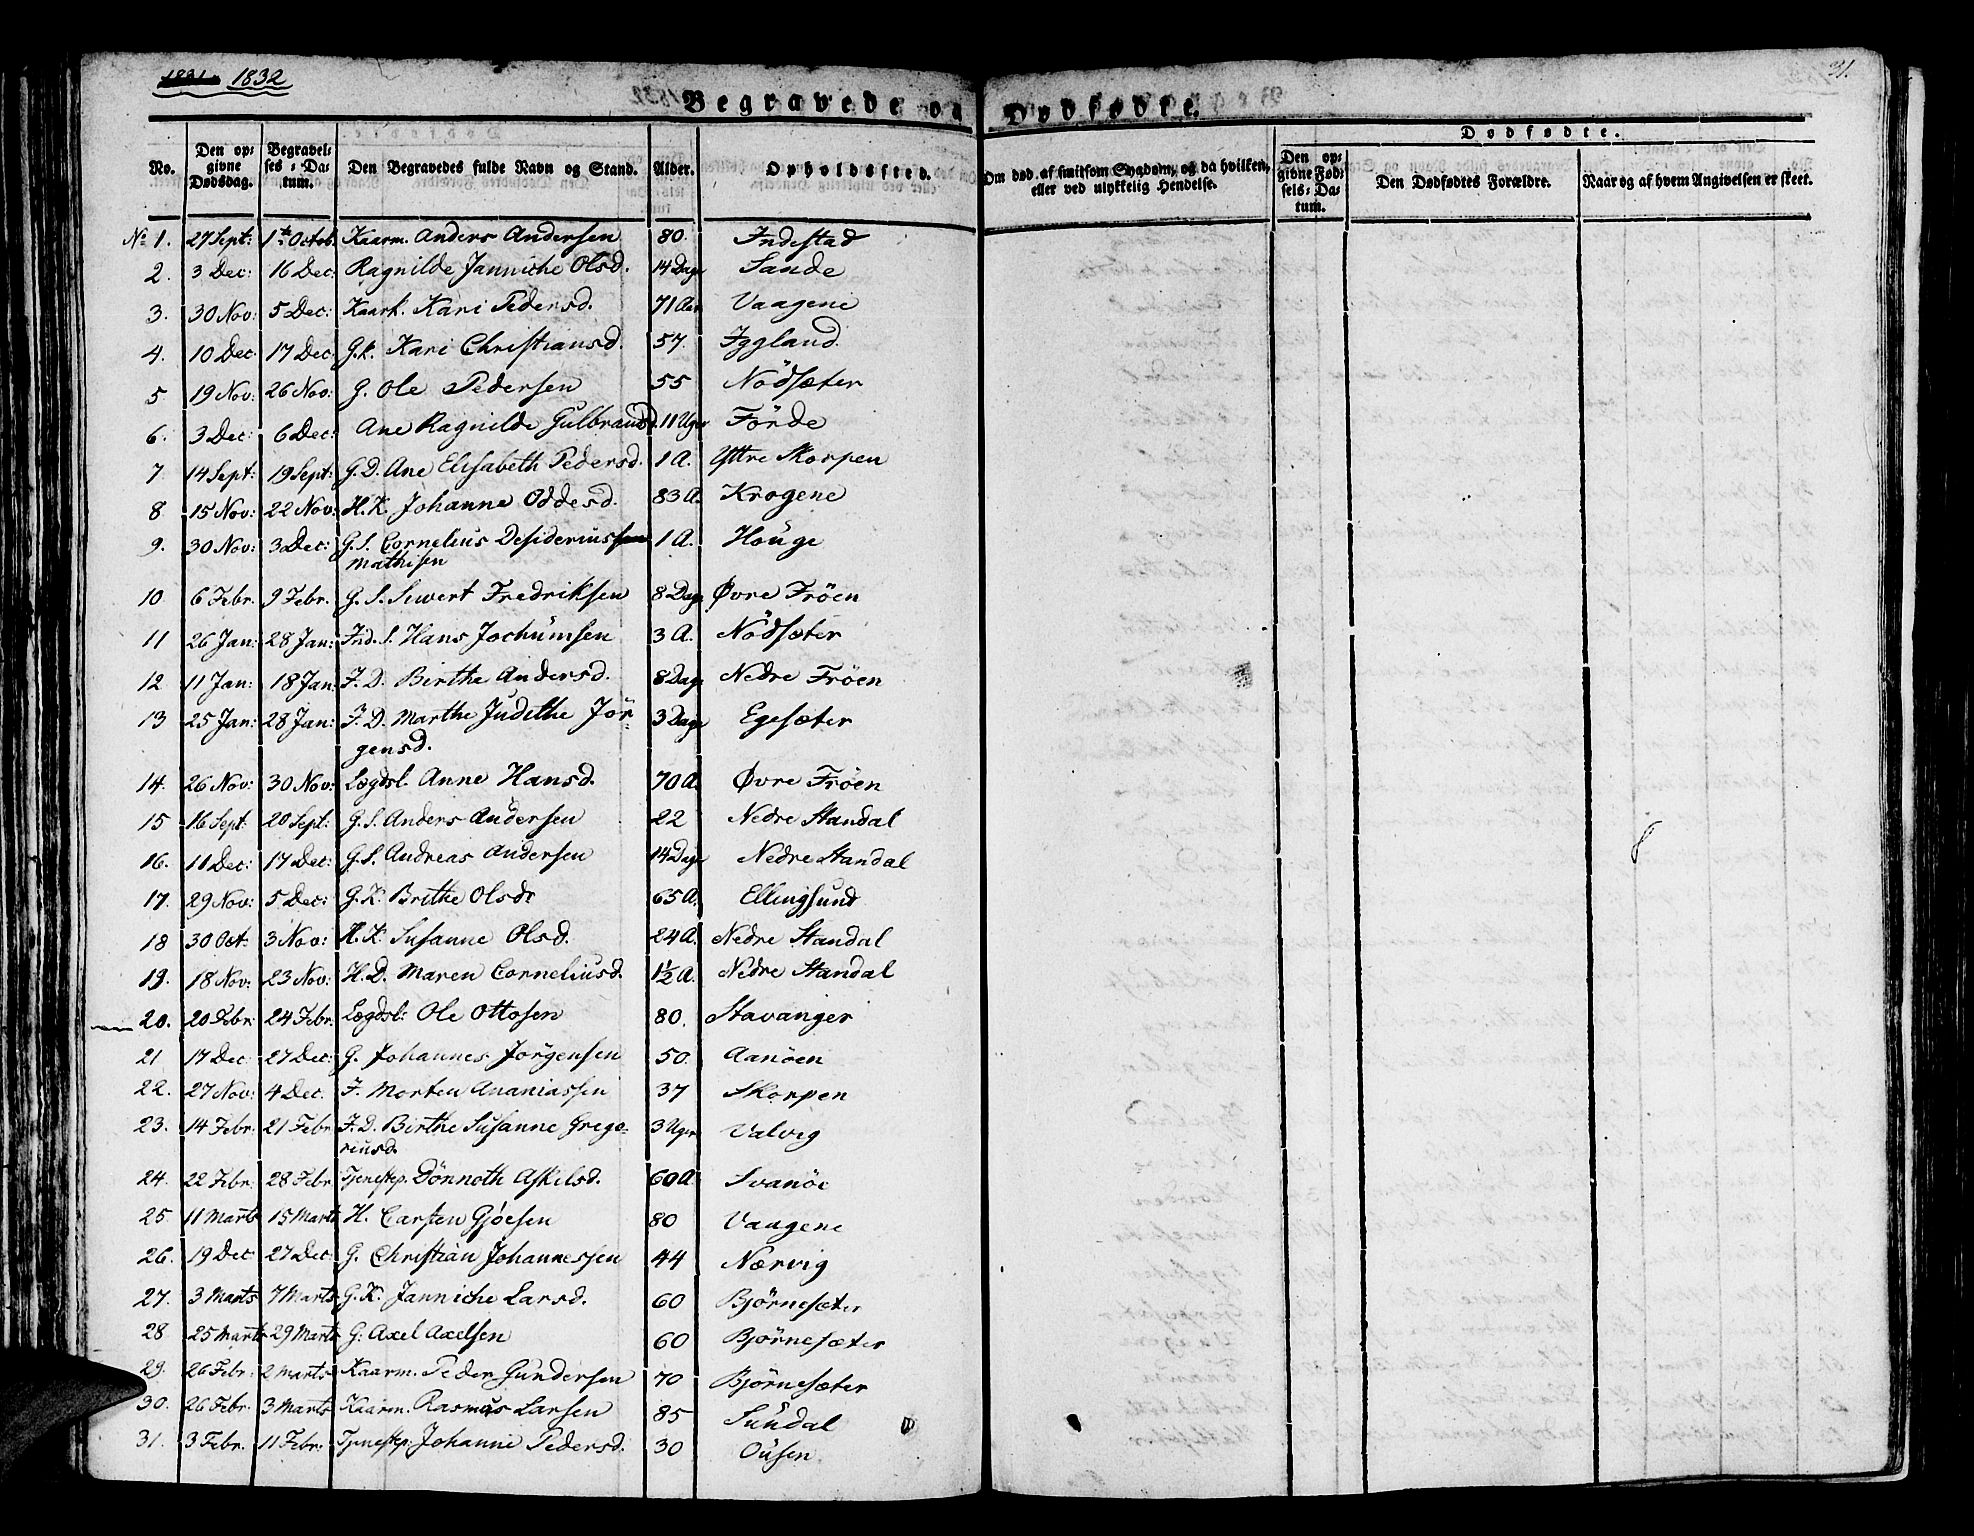 1831. 1832
31.
Begravede og Dødfødte.
Dødfødte.
No. Den opgivne Dødsdag. Begravelses-Datum. Den Begravedes fulde Navn og Stand. Alder. Opholdssted. Om død af smitsom Sygdom, og da hvilken, eller ved ulykkelig Hendelse. Den opgivne Fødsels-Datum. Den Dødfødtes Forældre. Naar og af hvem Angivelsen er skeet.
No 1. 27 Sept: 1ste Octob. Kaarm. Anders Andersen 80. Indestad
2. 3 Dec: 16 Dec. Ragnilde Janniche Olsd. 14 Dage Sande
3. 30 Nov: 5 Dec: Kaark. Kari Pedersd. 71 Aar Vaagene
4. 10 Dec: 17 Dec. G.k. Kari Christiansd. 57. Iggland.
5 19 Nov: 26 Nov: G. Ole Pedersen 55 Nödsæter
6. 3 Dec: 6 Dec: Ane Ragnilde Gulbrandsd. 11 Uger Förde
7. 14 Sept: 19 Sept: G.D. Ane Elisabeth Pedersd. 1 A. Yttre Skorpen
8. 15 Nov: 22 Nov: H.K. Johanne Oddesd. 83 A. Krogene
9. 30 Nov: 3 Dec: G.S. Cornelius Desiderius 1 A. Houge
Mathisen
10 6 Febr. 9 Febr. G.S. Siwert Fredriksen 8 Dage Øvre Fröen
11 26 Jan: 28 Jan: Ind.S. Hans Jochumsen 3 A. Nödsæter
12 11 Jan: 18 Jan: F.D. Birthe Andersd. 8 Dage Nedre Fröen
13 25 Jan: 28 Jan: F.D. Marthe Judithe Jör- 3 Dage Egesæter
gensd.
14. 26 Nov: 30 Nov: Lægdsl. Anne Hansd. 70 A. Øvre Fröen
15 16 Sept: 20 Sept: G.S. Anders Andersen 22 Nedre Standal
16. 11 Dec: 17 Dec: G.S. Andreas Andersen 14 Dage Nedre Standal
17. 29 Nov: 5 Dec: G.K. Brithe Olsdr 65 A. Ellingsund
18 30 Oct: 3 Nov: H.K. Susanne Olsd. 24 A. Nedre Standal
19. 18 Nov: 23 Nov: H.D. Maren Corneliusd. 1½ A. Nedre Standal
20. 20 Febr: 24 Febr. Lægdsl: Ole Ottosen 80. Stavanger
21 17 Dec 27 Dec: G. Johannes Jörgensen 50. Aanöen
22. 27 Nov: 4 Dec. F. Morten Ananiassen 37 Skorpen
23. 14 Febr: 21 Febr F.D. Birthe Susanne Grego- 3 Uger Valvig
riusd.
24. 22 Febr: 28 Febr Tjenestep. Dönnoth Askelsd. 60 A Svanöe
25. 11 Marts 15 Marts H. Carsten Gjöesen 80 Vaagene
26. 19 Dec 27 Dec G. Christian Johannessen 44 Nærvig
27. 3 Marts 7 Marts G.K. Janniche Larsd. 60 Bjørnesæter
28. 25 Marts 29 Marts G: Axel Axelsen 60 Bjørnesæter
29. 26 Febr: 2 Marts Kaarm. Peder Gundersen 70 Bjørnesæter
30. 26 Febr. 3 Marts Kaarm. Rasmus Larsen 85 Sundal
31. 3 Febr. 11 Febr. Tjenestep. Johanne Pedersd. 30 Ousen